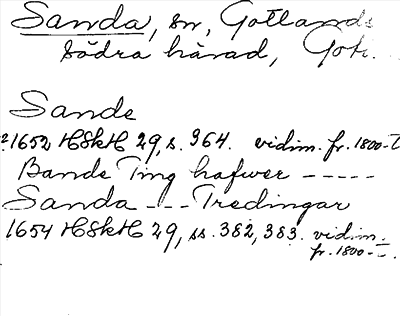 Sanda, sn, Gotlands
södra härad, Gotl.
Sande
1652 HSkH 29, s. 364. vidim. fr. 1800-t
Bande Ting hafwer -----
Sanda --- Tredingar
1654 HSkH 29, ss. 382, 383. vidim.
fr. 1800-t.